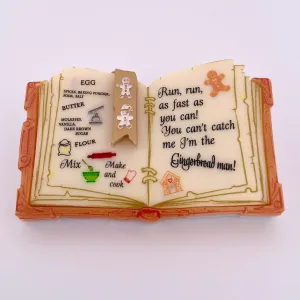 EGG
SPICES, BAKING POWDER,
SODA, SALT
BUTTER
MOLASSES,
VANILLA,
DARK BROWN
SUGAR
FLOUR
Mix
Make
and
cook
Run, run,
as fast as
you can!
You can't catch
me I'm the
Gingerbread man!